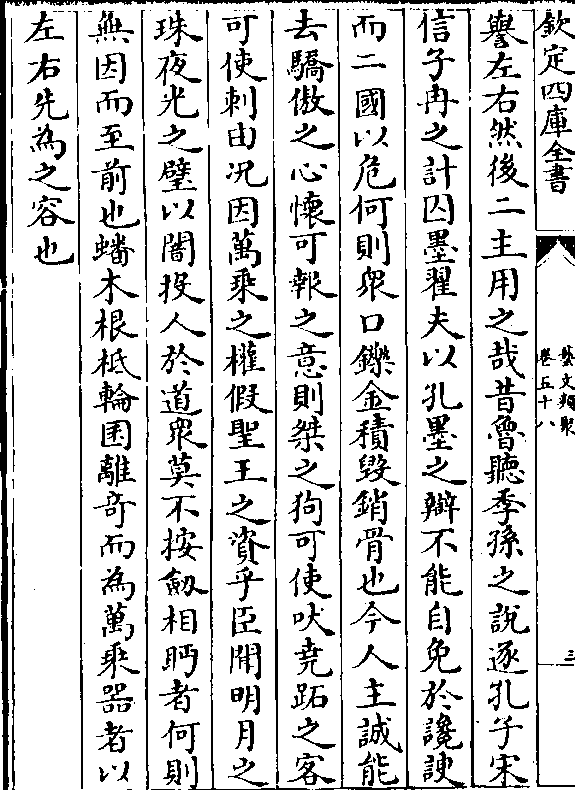 欽定四庫全書
藝文類聚
卷五十八
三
譽左右然後二主用之哉昔魯聽季孫之説逐孔子宋
信子冉之計囚墨翟夫以孔墨之辯不能自免於讒諛
而二國以危何則衆口鑠金積毁銷骨也今人主誠能
去驕傲之心懷可報之意則桀之狗可使吠堯跖之客
可使刺由况因萬乘之權假聖王之資乎臣聞明月之
珠夜光之璧以闇投人於道衆莫不按劒相眄者何則
無因而至前也蟠木根柢輪囷離奇而為萬乘器者以
左右先為之容也